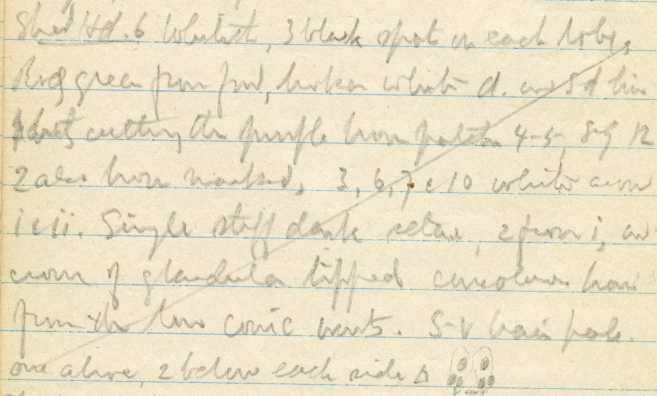 Shed Hd. 6 Whitish, 3 black spots on each lobe,
green from food, broken white d. and s d line
cutting the purple brown patches 4-5, 8-9, 12
2 also brown marked, 3, 6, 7 & 10 white across
i & ii. Single stiff dark setae, 2 from i, and
crown of glandular tipped hairs
from the low conic warts. S-V hairs pale.
one above, 2 below each side